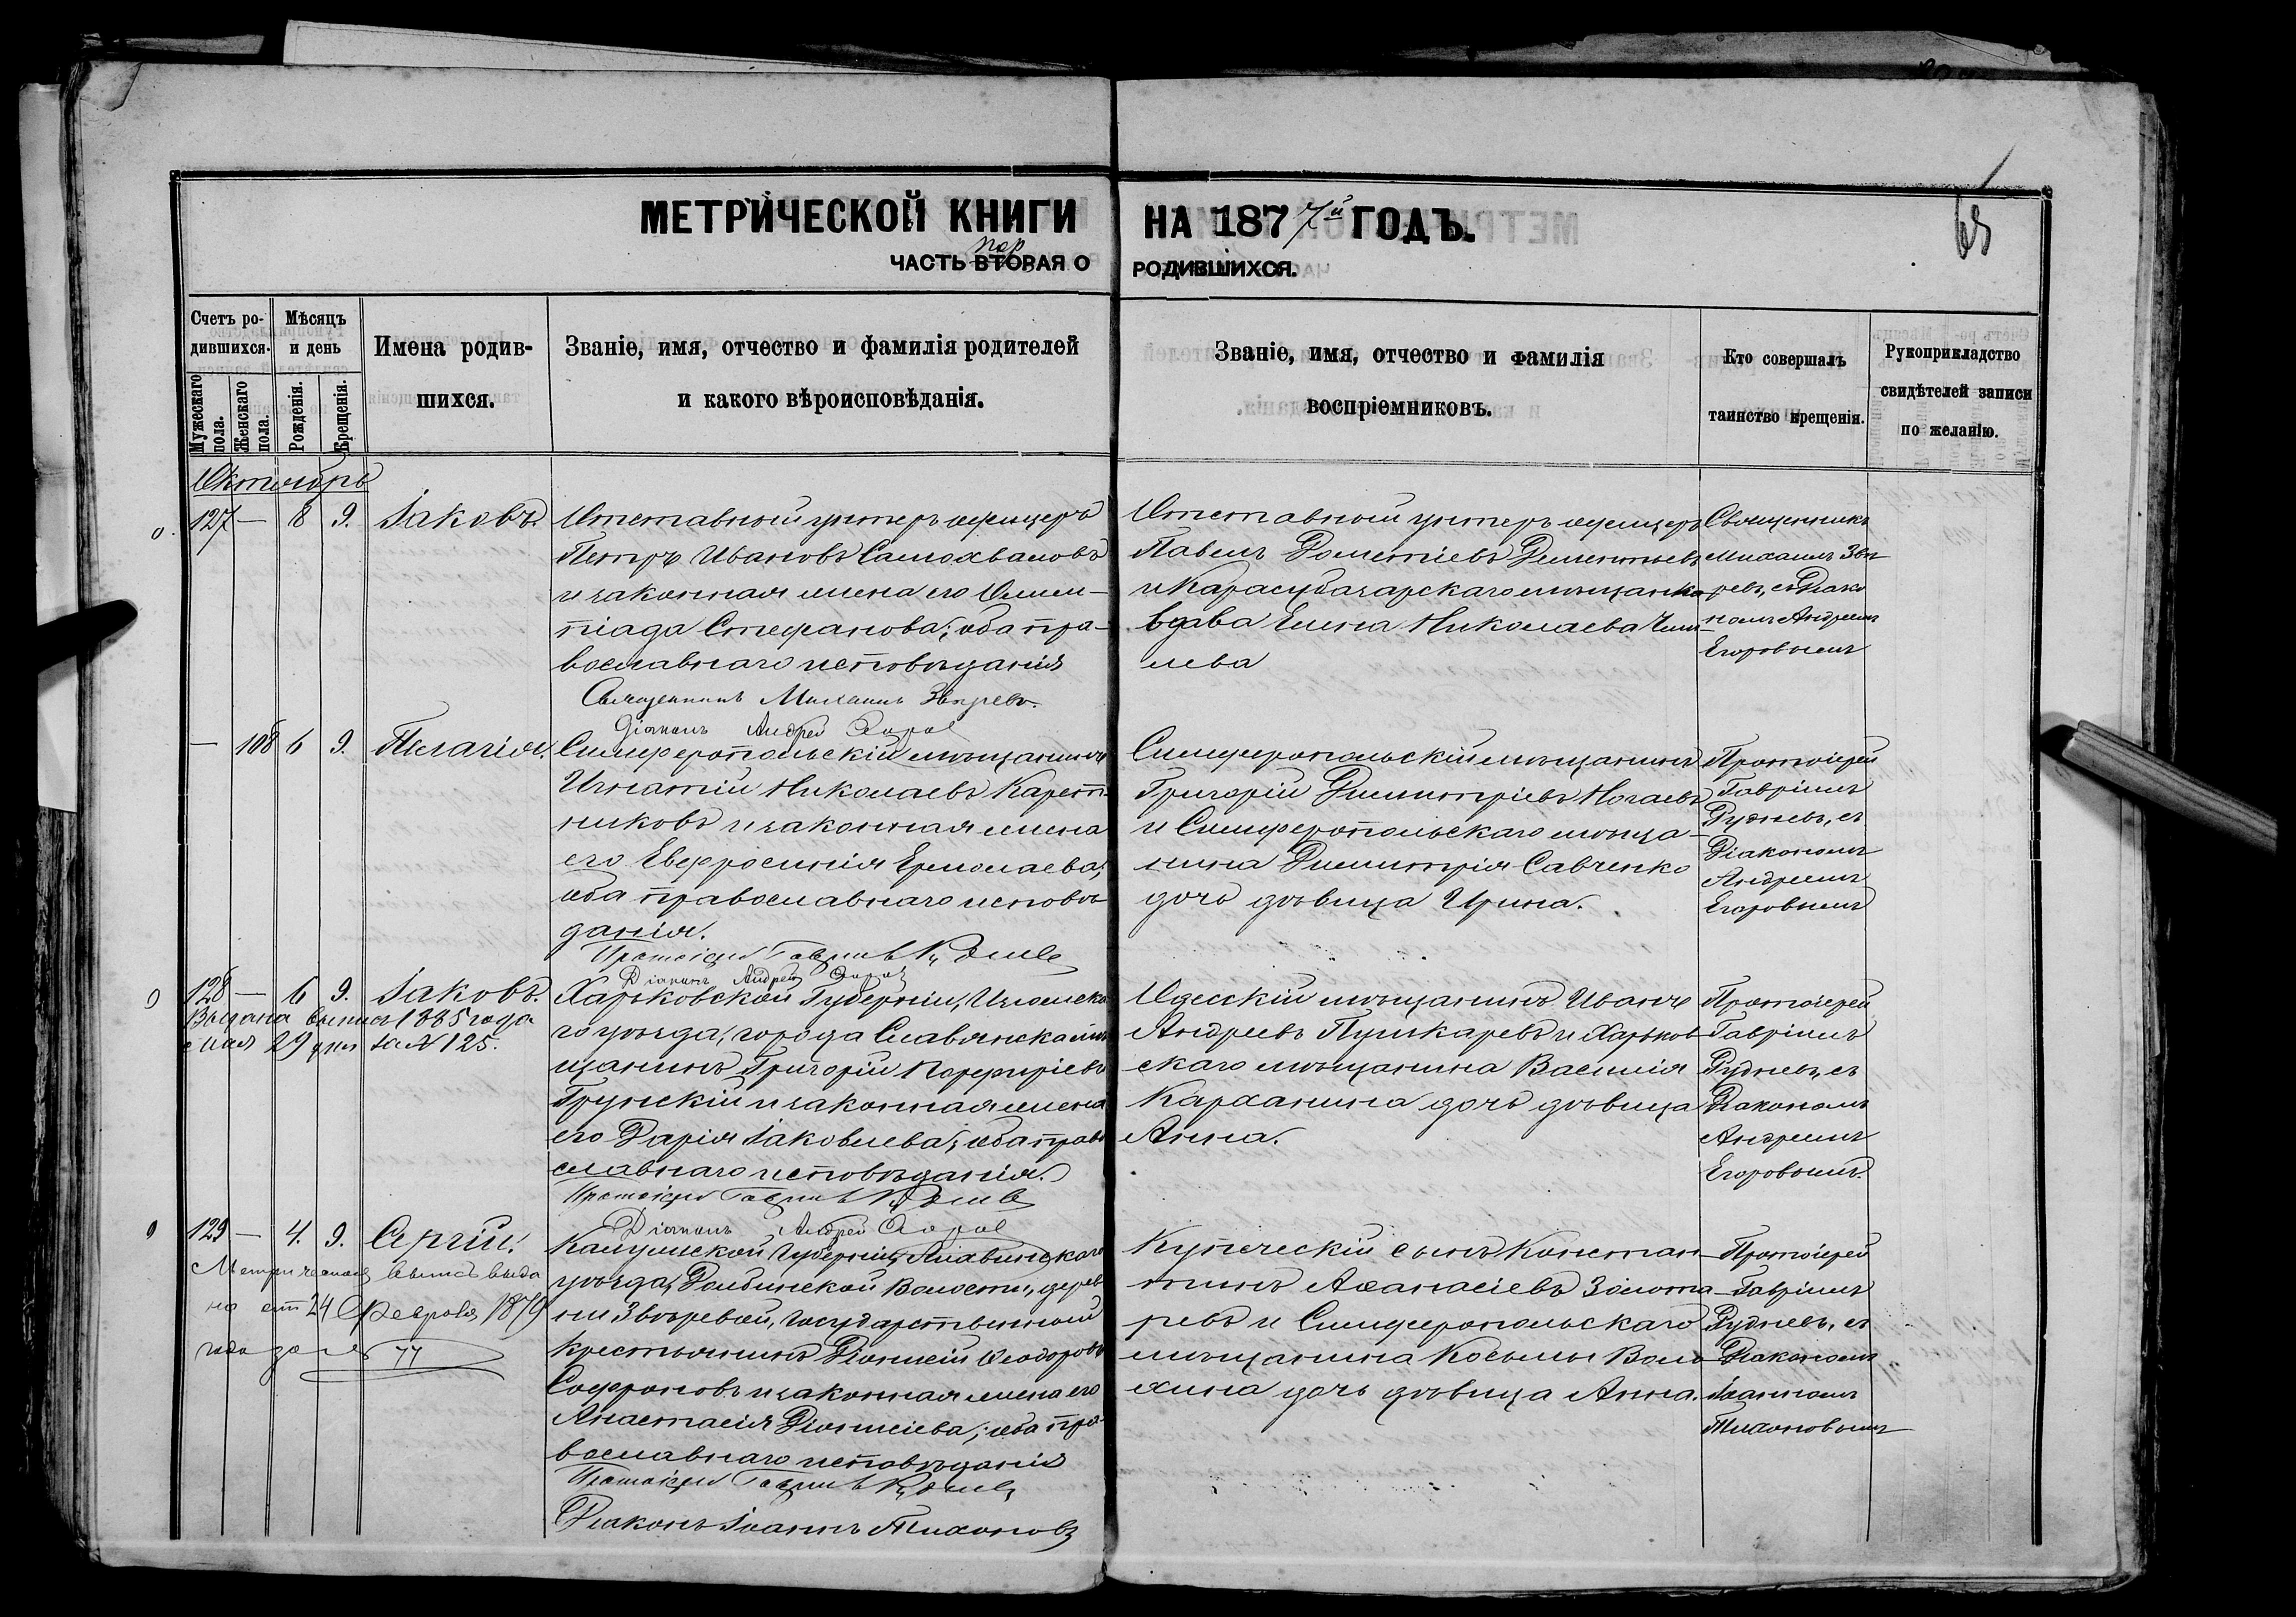 МЕТРИЧЕСКОЙ КНИГИ НА 1877й ГОДЪ.
65
ЧАСТЬ ВТОРАЯ О РОДИВШИХСЯ.
пер
Счетъ родившихся.
Мужескаго пола.
Женскаго пола.
Мѣсяцъ и день
Рожденія.
Крещенія.
Имена родившихся.
Званіе, имя, отчество и фамилія родителей
и какого вѣроисповѣданія.
Званіе, имя, отчество и фамилія
воспріемниковъ.
Кто совершалъ
таинство крещенія.
Рукоприкладство
свидѣтелей записи
по желанію.
Октябрь
127 — 8 9. Іаковъ.
Отставной унтеръ офицеръ
Петръ Ивановъ Самохваловъ
и законная жена его Олим-
піада Стефанова; оба пра-
вославнаго исповѣданія
Священникъ Михаилъ Звѣревъ.
Діаконъ Андрей Егоров
Отставной унтеръ офицеръ
Павелъ Дометіевъ Дементьевъ
и Карасубазарскаго мѣщанина
вдова Елена Николаева
лева
Священникъ
Михаилъ Звѣ-
ревъ, съ Діако
номъ Андреемъ
Егоровымъ
— 108 6 9. Пелагія.
Симферопольскій мѣщанинъ
Игнатій Николаевъ Карет-
никовъ и законная жена
его Евфросинія Ермолаева;
оба православнаго исповѣ-
данія.
Протоіерей Гавріилъ Рудневъ
Діаконъ Андрей Егоров
Симферопольскій мѣщанинъ
Григорій Димитріевъ Ногаевъ
и Симферопольскаго мѣща-
нина Димитрія Савченко
дочь дѣвица Ирина.
Протоіерей
Гавріилъ
Рудневъ, съ
Діакономъ
Андреемъ
Егоровымъ
128 — 6 9. Іаковъ.
Выдана выпись 1885 года
мая 29 дня за № 125.
Харьковской Губерніи, Изюмска-
го уѣзда, города Славянска мѣ-
щанинъ Григорій Порфиріевъ
Грунскій и законная жена
его Дарія Іаковлева; оба право
славнаго исповѣданія.
Протоіерей Гавріилъ Рудневъ
Діаконъ Андрей Егоров
Одесскій мѣщанинъ Иванъ
Андреевъ Пушкаревъ и Харьков-
скаго мѣщанина Василія
Карханина дочь дѣвица
Анна.
Протоіерей
Гавріилъ
Рудневъ, съ
Діакономъ
Андреемъ
Егоровымъ.
129 — 4. 9. Сергій.
Метрическая выпись выда
на от 24 Февраля 1879
года за № 77
Калужской Губерніи, Лихвинскаго
уѣзда, Долбинской Волости, дерев
ни Звѣревой, государственный
крестьянинъ Діонисій Ѳеодоровъ
Софроновъ и законная жена его
Анастасія Діонисіева; оба пра-
вославнаго исповѣданія
Протоіерей Гавріилъ Рудневъ
Діаконъ Іоаннъ Тихоновъ
Купеческій сынъ Констан-
тинъ Аѳанасіевъ Золота-
ревъ и Симферопольскаго
мѣщанина Косьмы Воло-
хина дочь дѣвица Анна.
Протоіерей
Гавріилъ
Рудневъ, съ
Діакономъ
Іоанномъ
Тихоновымъ